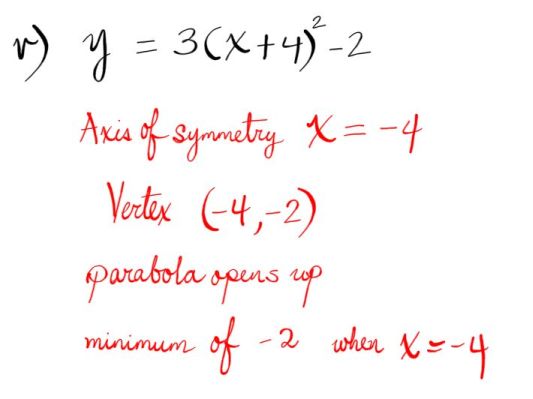 r) y = 3(x+4)²-2
Axis of symmetry x = -4
Vertex (-4,-2)
parabola opens up
minimum of -2 when x=-4